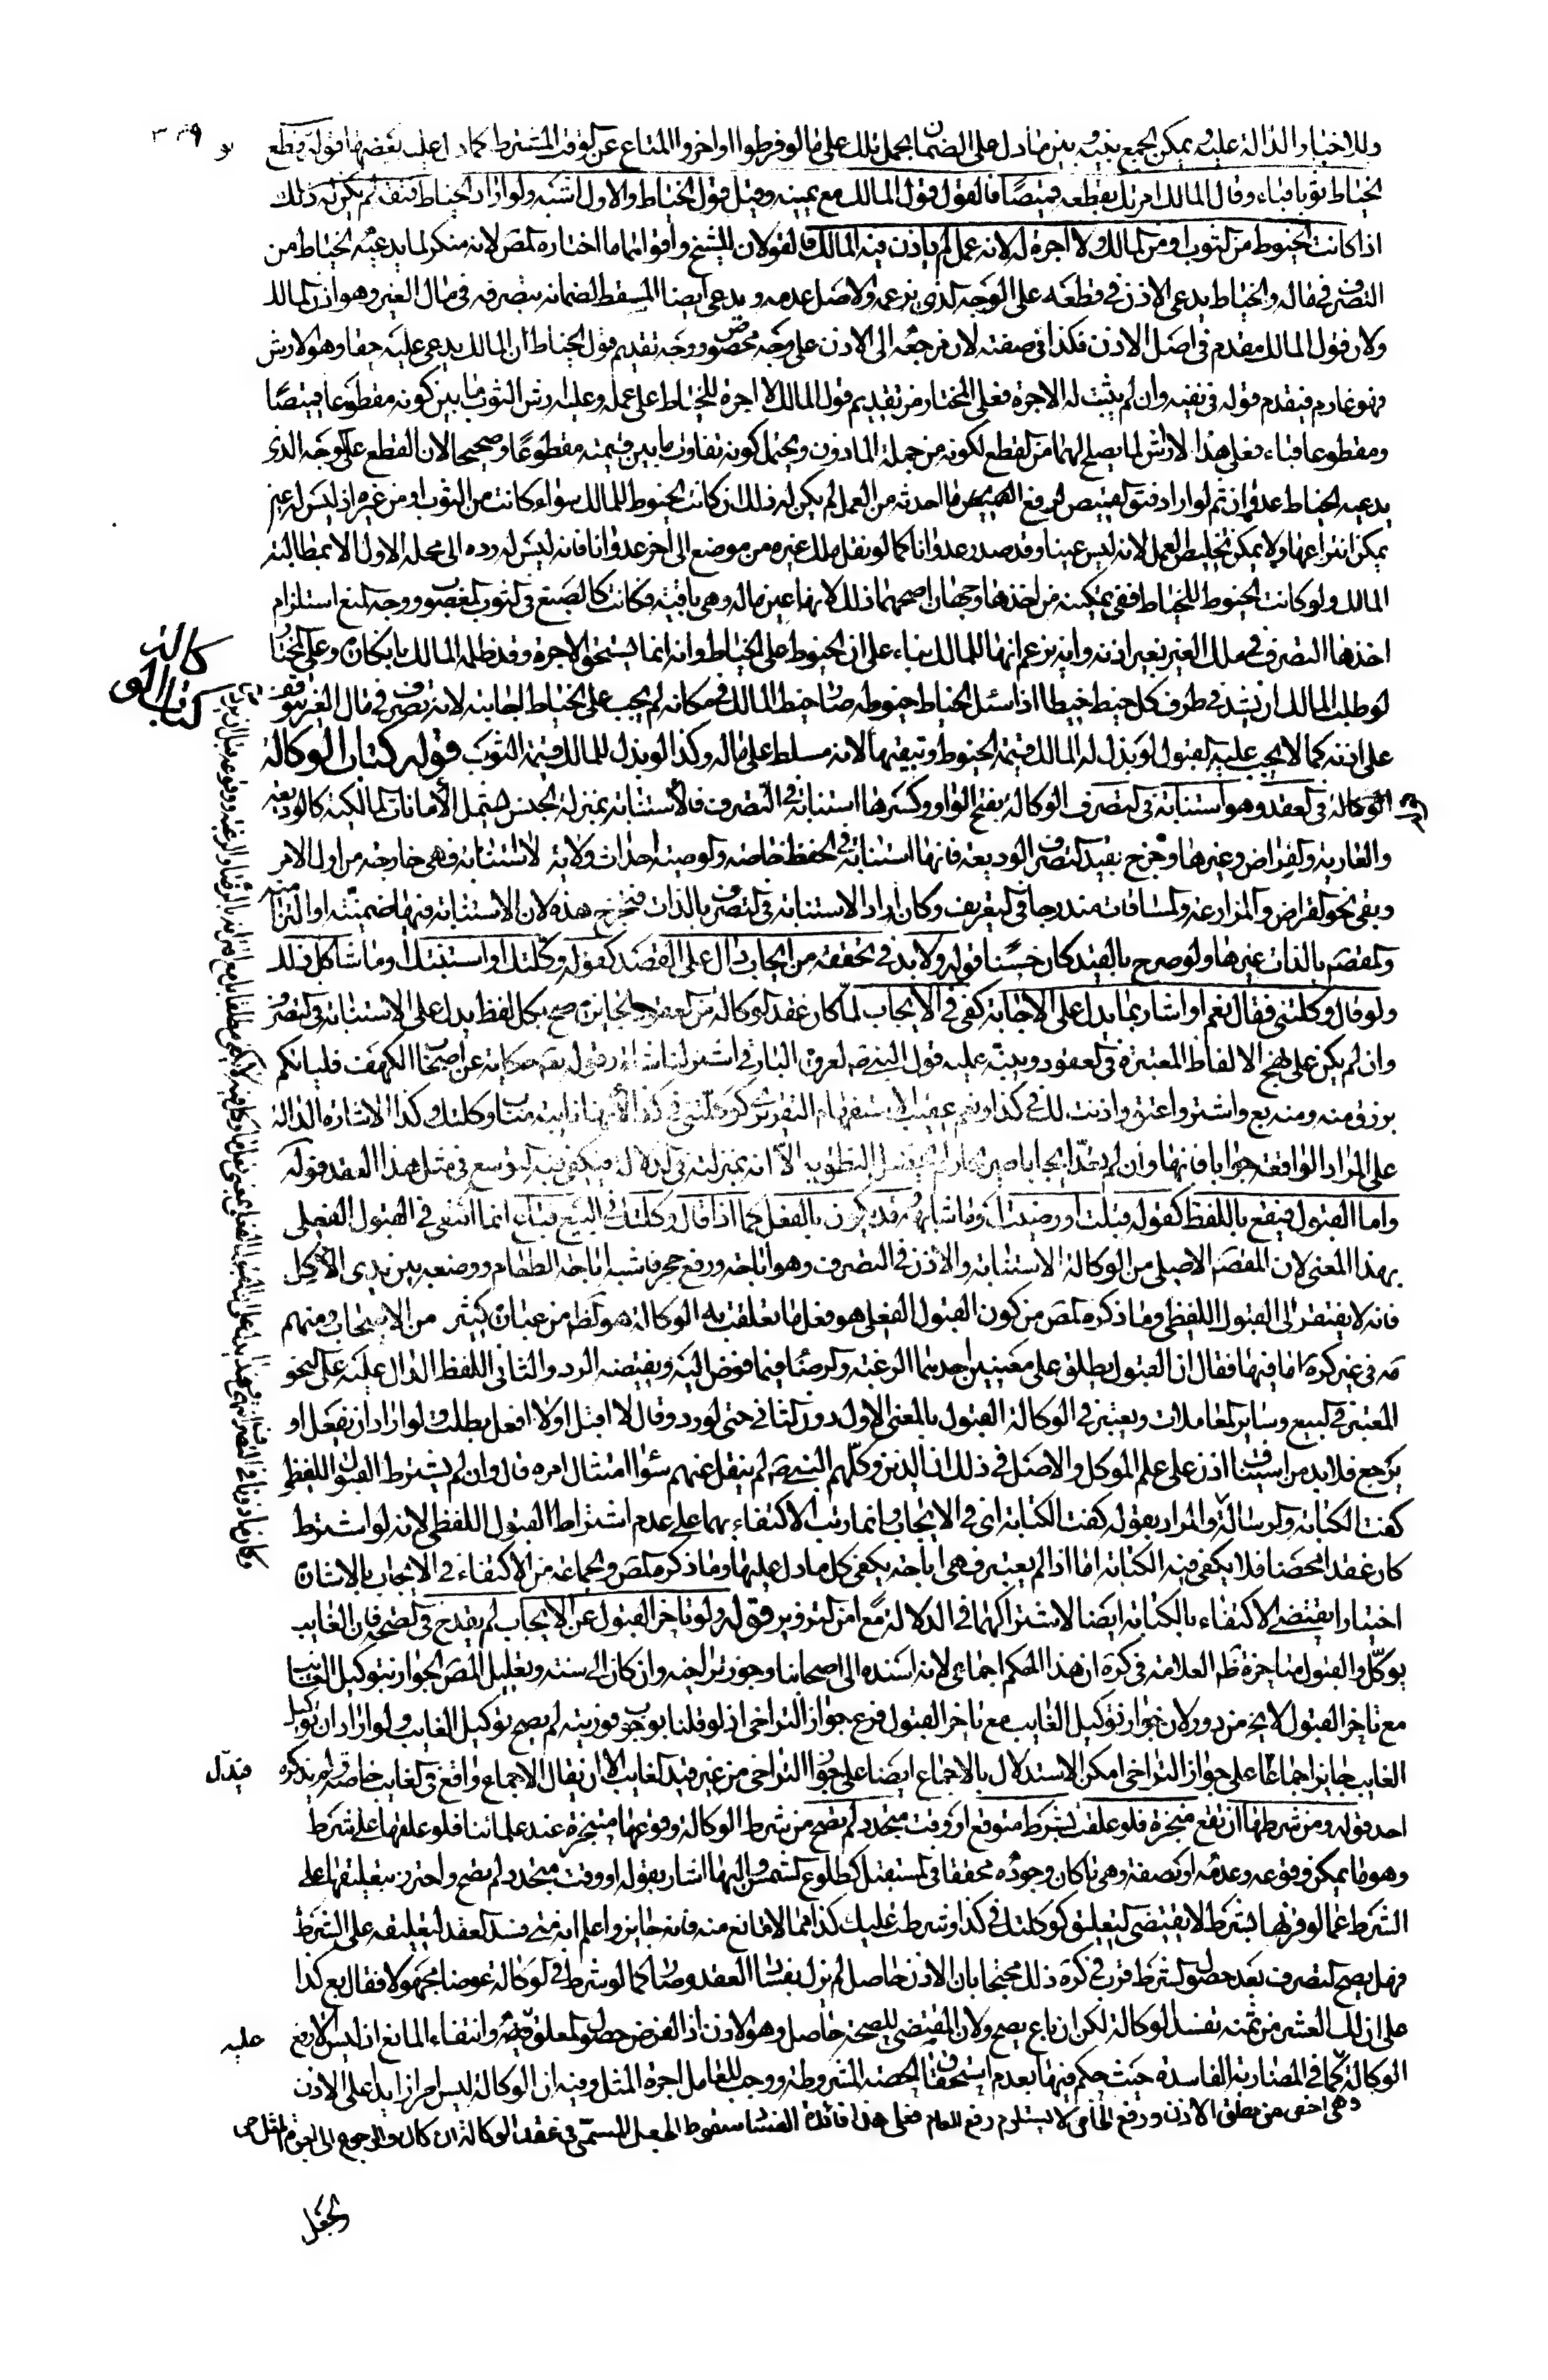 وللاخبار الدالة عليه يمكن الجمع بينه وبين مادل على الضمان بحمل تلك على ما لو فرطوا او اخروا المتاع عن الوقت المشترط كما دل عليه بعضها قوله ولو قطع
الخياط ثوبا قباء وقال المالك امرتك بقطعه قميصا فالقول قول المالك مع يمينه وقيل قول الخياط والاول اشبه ولو اراد الخياط فتقه لم يكن له ذلك
اذا كانت الخيوط من الثوب او من المالك ولا اجرة له لانه عمل لم ياذن فيه المالك القولان للشيخ واقواهما ما اختاره المص لانه منكر لما يدعيه الخياط من
التصرف في ماله والخياط يدعي الاذن في قطعه على الوجه الذي يزعمه والاصل عدمه ويدعي ايضا المسقط لضمانه بتصرفه في مال الغير وهو اذن المالك
ولان قول المالك مقدم في اصل الاذن فكذا في صفته لان مرجعه الى الاذن على وجه مخصوص ووجه تقديم قول الخياط ان المالك يدعي عليه حقا وهو الارش
فهو غارم فيقدم قوله في نفيه وان لم يثبت له الاجرة فعلى المختار من تقديم قول المالك لا اجرة للخياط على عمله وعليه ارش الثوب ما بين كونه مقطوعا قميصا
ومقطوعا قباء فعلى هذا لا ارش لما يصلح لهما من القطع لكونه من جملة الماذون ويحتمل كونه تفاوت ما بين قيمته مقطوعا وصحيحا لان القطع على الوجه الذي
يدعيه الخياط عدوان ثم لو اراد فتق القميص لرفع ما احدثه من العمل لم يكن له ذلك ان كانت الخيوط للمالك سواء كانت من الثوب او من غيره اذ ليس له عين
يمكن انتزاعها ولا يمكن تخليص العمل لانه ليس عينا وقد صدر عدوانا كما لو نقل ملك غيره من موضع الى اخر عدوانا فانه ليس له رده الى محله الاول الا بمطالبة
المالك ولو كانت الخيوط للخياط ففي تمكينه من اخذها وجهان اصحهما ذلك لانها عين ماله وهي باقية فكانت كالصبغ في الثوب المغصوب ووجه المنع استلزام
اخذها التصرف في ملك الغير بغير اذنه وانه يزعم انها للمالك بناء على ان الخيوط على الخياط وانه انما يستحق الاجرة وقد ظلمه المالك بانكاره وعلى المختار
لو طلب المالك ان يشد في طرف كل خيط خيطا اذا سل الخياط خيوطه صار خيط المالك في مكانه لم يجب على الخياط اجابته لانه تصرف في مال الغير يتوقف
على اذنه كما لا يجب عليه القبول لو بذل له المالك قيمة الخيوط وتبقيتها لانه مسلط على ماله وكذا لو بذل للمالك قيمة الثوب قوله كتاب الوكالة
الوكالة في العقد وهو استنابة في التصرف الوكالة بفتح الواو وكسرها استنابة في التصرف فالاستنابة بمنزلة الجنس يشمل الامانات المالكية كالوديعة
والعارية والقراض وغيرها وخرج بقيد التصرف الوديعة فانها استنابة في الحفظ خاصة والوصية احداث ولاية لا استنابة فهي خارجة من اول الامر
وبقي نحو القراض والمزارعة والمساقات مندرجا في التعريف وكان اراد الاستنابة في التصرف بالذات فتخرج هذه لان الاستنابة فيها ضمنية او التزامية
والمقصد بالذات غيرها ولو صرح بالقيد كان حسنا قوله ولا بد في تحققه من ايجاب دال على القصد كقوله وكلتك او استنبتك وما شاكل ذلك
ولو قال وكلتني فقال نعم او اشار بما يدل على الاجابة كفى في الايجاب لما كان عقد الوكالة من العقود الجائزة صح بكل لفظ يدل على الاستنابة في التصرف
وان لم يكن على نهج الالفاظ المعتبرة في العقود وينبه عليه قول النبي ص لعروة البارقي اشتر لنا شاة وقوله تع حكاية عن اصحاب الكهف فليأتكم
برزق منه ومنه بع واشتر واعتق واذنت لك في كذا ونعم عقيب الاستفهام التقريري كوكلتني في كذا لانها نائبة مناب وكلتك وكذا الاشارة الدالة
على المراد الواقعة جوابا فانها وان لم تعد ايجابا صريحا الا انه بمنزلته في الدلالة فيكفي فيه لتوسع في مثل هذا العقد قوله
واما القبول فيقع باللفظ كقوله قبلت او رضيت وما شابهه وقد يكون بالفعل كما اذا قال وكلتك في البيع فباع انما اكتفى في القبول الفعلي
بهذا المعنى لان المقصد الاصلي من الوكالة الاستنابة والاذن في التصرف وهو اباحة ورفع حجر فاشبه اباحة الطعام ووضعه بين يدي الآكل
فانه لا يفتقر الى القبول اللفظي وما ذكره المص من كون القبول الفعلي هو فعل ما تعلقت به الوكالة هو الظ من عبارة كثير من الاصحاب ومنهم
مه في غير كره اما فيها فقال ان القبول يطلق على معنيين احدهما الرغبة والرضا فيما فوض اليه ونقيضه الرد والثاني اللفظ الدال عليه على النحو
المعتبر في البيع وساير المعاملات ويعتبر في الوكالة القبول بالمعنى الاول دون الثاني حتى لو رد وقال لا اقبل او لا افعل بطلت ولو اراد ان يفعل او
يرجع فلا بد من استيناف اذن على علم الموكل والاصل في ذلك ان الذين وكلهم النبي ص لم ينقل عنهم سوى امتثال امره قال وان لم يشترط القبول اللفظي
كفت الكتابة والرسالة والمراد بقوله كفت الكتابة اي في الايجاب وانما رتب الاكتفاء بهما على عدم اشتراط القبول اللفظي لانه لو اشترط
كان عقدا محضا فلا يكفي فيه الكتابة اما اذا لم يعتبر فهي اباحة يكفي كل ما دل عليها وما ذكره المص والجماعة من الاكتفاء في الايجاب بالاشارة
اختيارا يقتضي الاكتفاء بالكتابة ايضا لاشتراكهما في الدلالة مع امن التزوير قوله ولو تاخر القبول عن الايجاب لم يقدح في الصحة فان الغايب
يوكل والقبول متاخر ظ العلامة في كرة ان هذا الحكم اجماعي لانه اسنده الى اصحابنا وجوز تراخيه وان كان الى سنة وتعليل المص الجواز بتوكيل الغايب
مع تاخر القبول لا يخ من دور لان جواز توكيل الغايب مع تاخر القبول فرع جواز التراخي اذ لو قلنا بوجوب فوريته لم يصح توكيل الغايب ولو اراد ان توكيل
الغايب جايز اجماعا على جواز التراخي امكن الاستدلال بالاجماع ايضا على جواز التراخي من غير قيد الغايب الا ان يقال الاجماع واقع في الغايب خاصة ولم يذكره
احد قوله ومن شرطها ان تقع منجزة فلو علقت بشرط متوقع او وقت متجدد لم يصح من شرط الوكالة وقوعها منجزة عند علمائنا فلو علقها على شرط
وهو ما يمكن وقوعه وعدمه او صفة وهي ما كان وجوده محققا في المستقبل كطلوع الشمس واليها اشار بقوله او وقت متجدد لم يصح واحترز بتعليقها على
الشرط عما لو قرنها بشرط لا يقتضي التعليق كوكلتك في كذا وشرطت عليك كذا مما لا مانع منه فانه جايز واعلم انه متى فسد العقد لتعليقه على الشرط
فهل يصح التصرف بعد حصول الشرط قرب في كرة ذلك محتجا بان الاذن حاصل لم يزل بفساد العقد وصار كما لو شرط في الوكالة عوضا مجهولا فقال بع كذا
على ان لك العشر من ثمنه تفسد الوكالة لكن ان باع يصح ولان المقتضي للصحة حاصل وهو الاذن اذ الفرض حصول المعلق عليه وانتفاء المانع اذ ليس الا رفع
الوكالة كما في المضاربة الفاسدة حيث حكم فيها بعدم استحقاق الحصة المشروطة ووجب للعامل اجرة المثل وفيه ان الوكالة ليس امرا زايدا على الاذن
وهي اخص من مطلق الاذن ورفع الخاص لا يستلزم رفع العام فعلى هذا فائدة الفساد سقوط الجعل المسمى في عقد الوكالة ان كان والرجوع الى اجرة المثل ص
والجعل
كتاب الوكالة